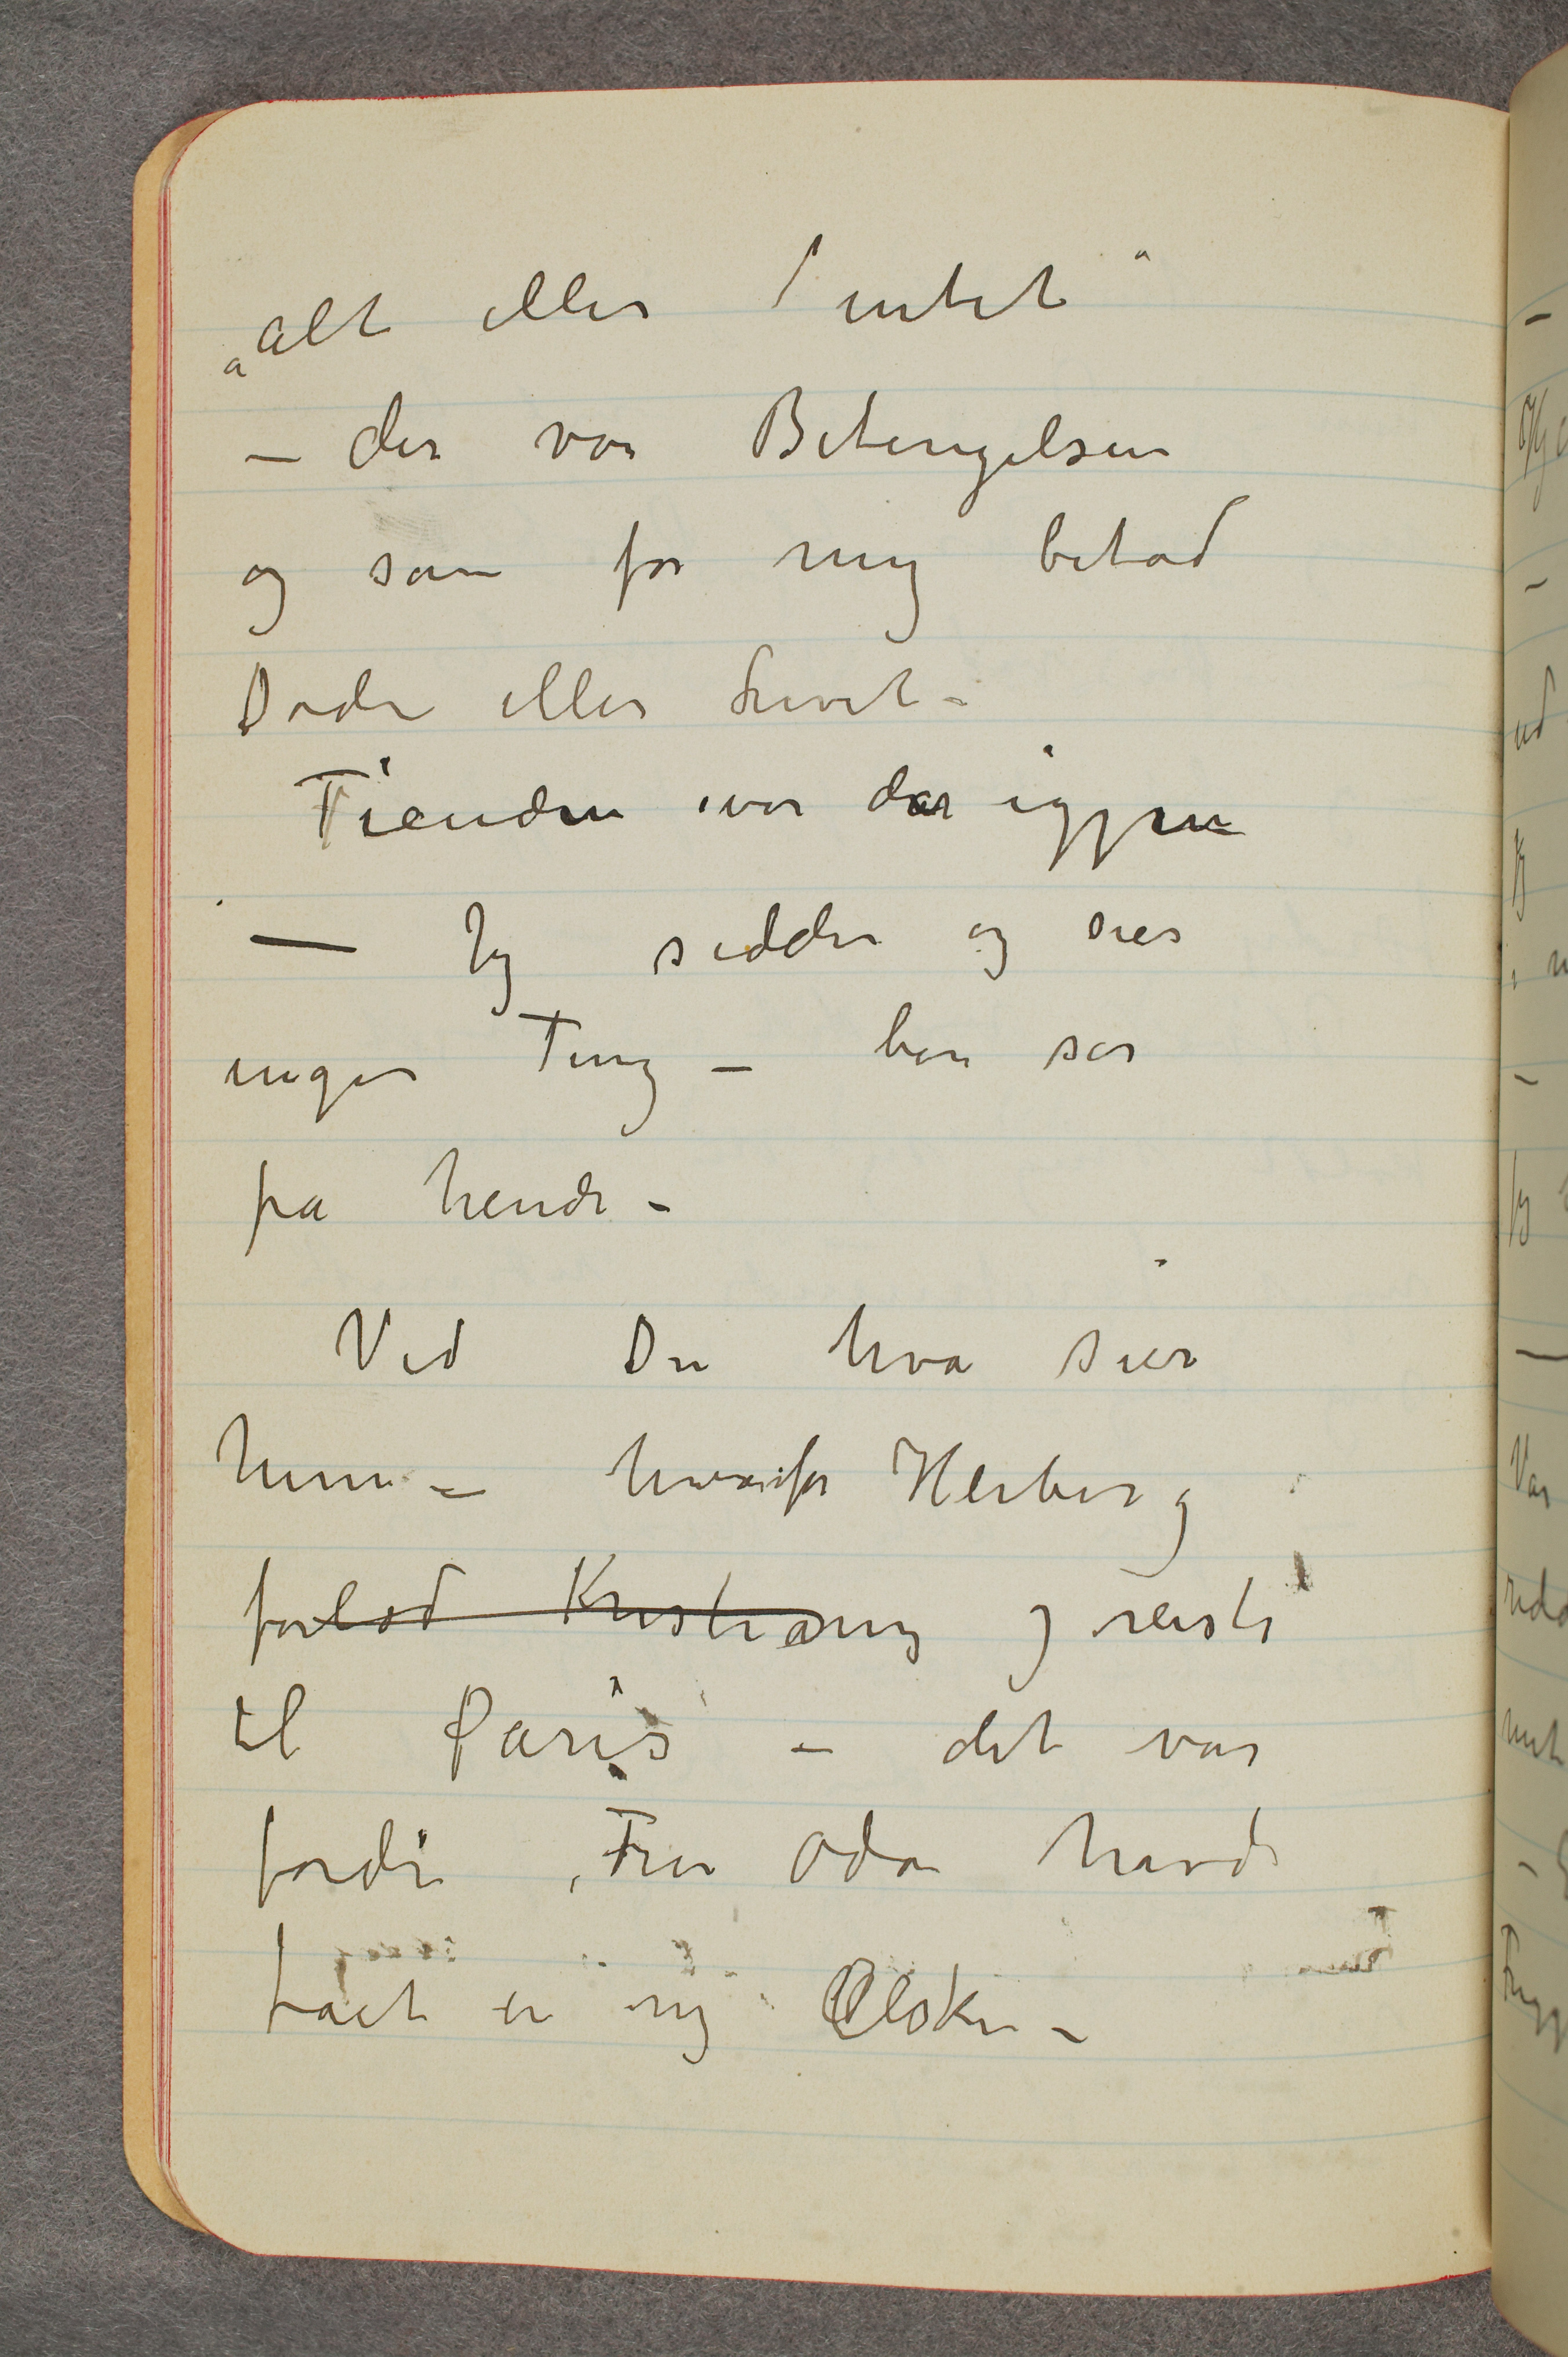 „alt eller intet“
– der var Betingelsen
og som for mig betød
Døden eller Livet –
Fienden var der igjen
– Jeg sidder og sier
ingen Ting – bare ser
på hende –
Ved Du hva sier
hun – hvorfor Herberg
forlod Kristiania og reiste
til Paris – det var
fordi Fru Oda havde
fået en ny Elsker –